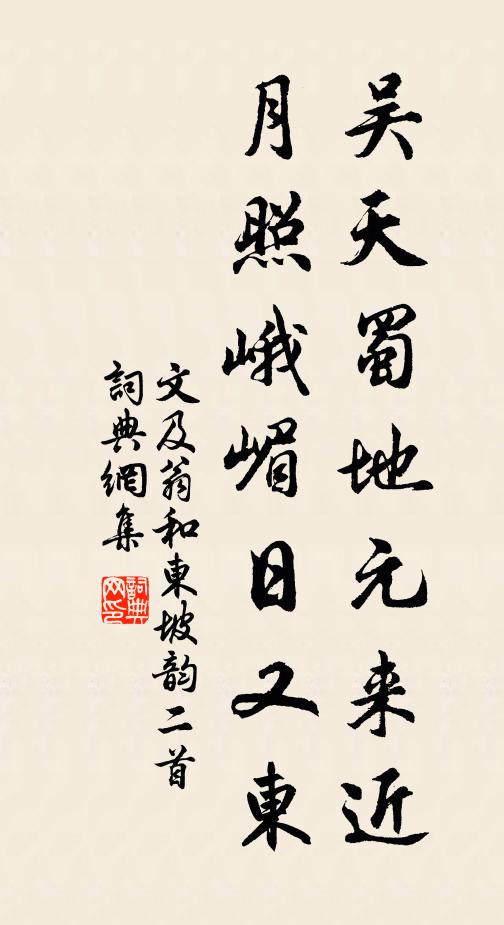 吴天蜀地元来近
月照峨嵋日又東
文及翁和東坡韵二首
詞典網集
詞典網印